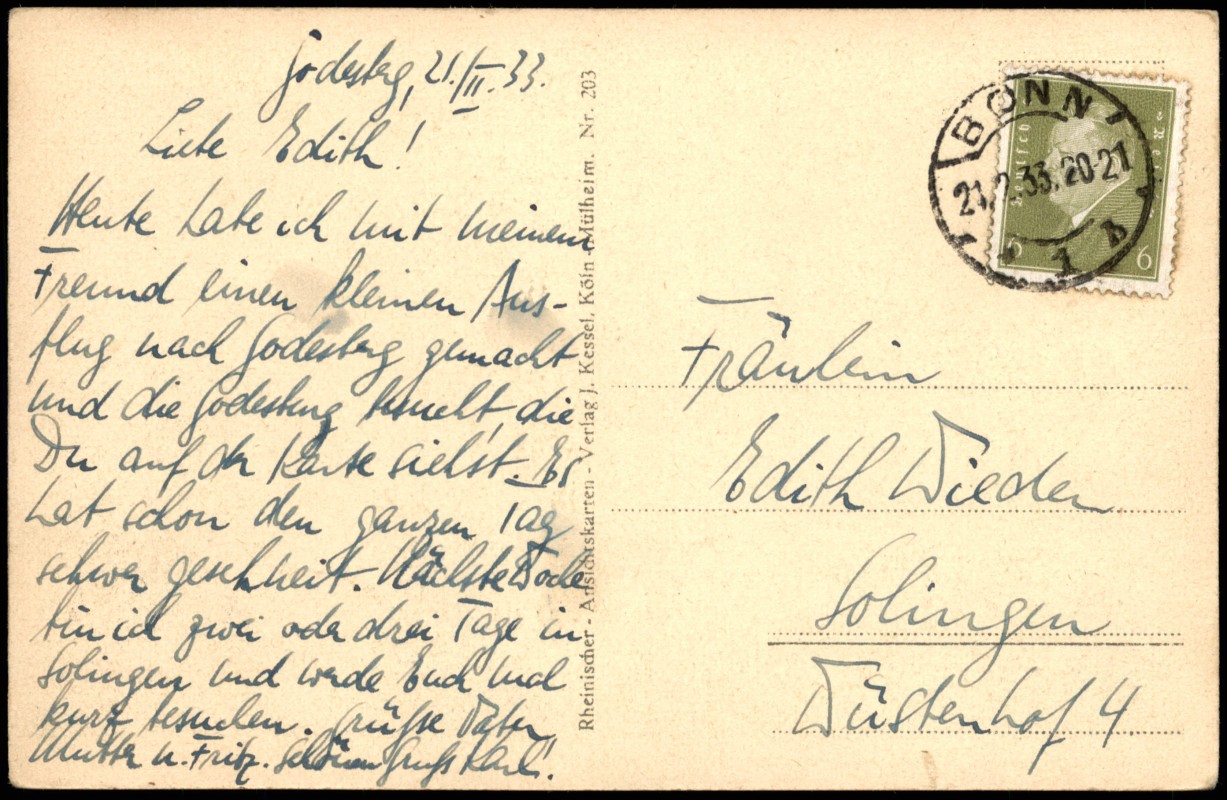 Godesberg, 21./II.33.
Liebe Edith!
Heute habe ich mit meinem
Freund einen kleinen Aus-
flug nach Godesberg gemacht
und die Godesburg besucht, die
Du auf der Karte siehst. Es
hat schon den ganzen Tag
schwer geschneit. Nächste Woche
bin ich zwei oder drei Tage in
Solingen und werde Euch mal
kurz besuchen. Grüße Vater,
Mutter u. Fritz. Schönen Gruß Karl.
Rheinischer - Ansichtskarten - Verlag J. Kessel, Köln-Mülheim. Nr. 203
BONN
21.2.33.20-21
1 B
6 6
Fräulein
Edith Wieden
Solingen
Wüstenhof 4